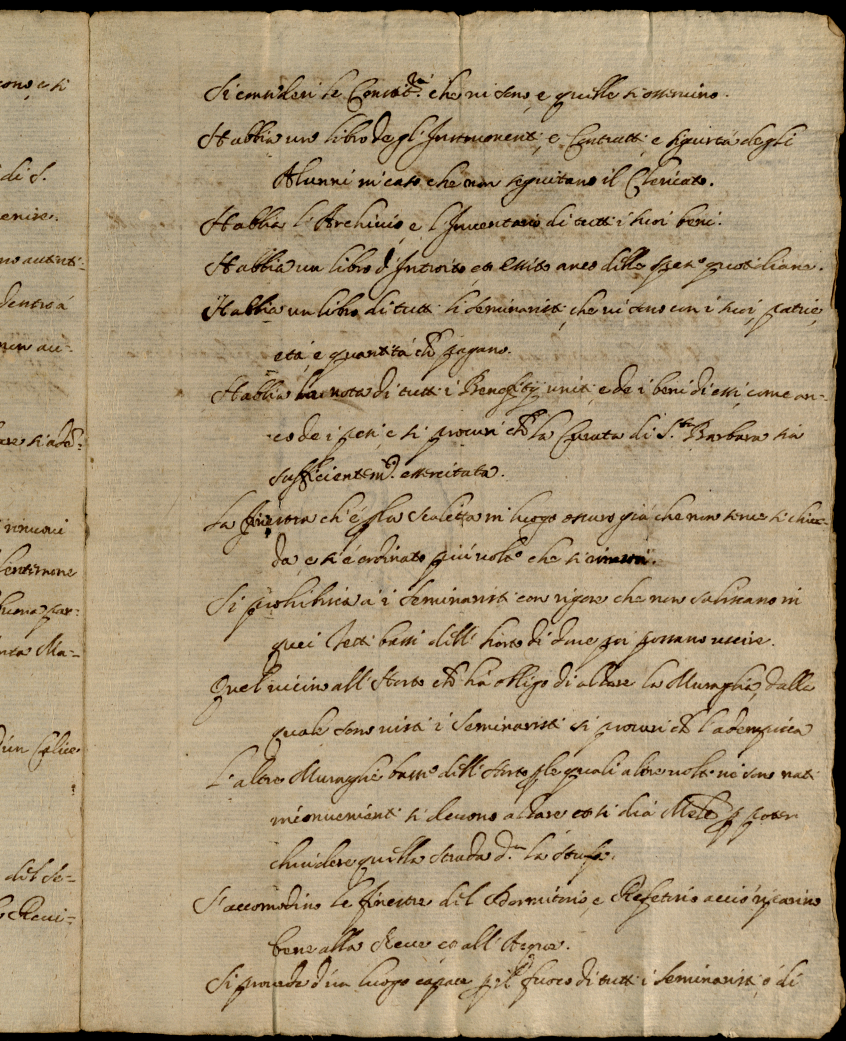 cono, e si
di S.
venire.
no autenti=
dentro à
non au=
rinuovi
Ma=
d'un Calice
del Se=
Si emendi le Constit.ni che vi sono, e quelle si osservino.
Habbia un libro degl'Instrumenti, e Contratti e sigurtà degli
Alunni in caso che non seguitano il Clericato.
Habbia l'Archivio, e l'Inventario di tutti i suoi beni.
Habbia un libro d'Introito, et Essito anco delle spese quotidiane.
Habbia un libro di tutti li seminaristi, che vi sono con i suoi, patrie,
età, e quantità ch pagano.
Habbia la nota di tutti i Beneficij uniti, e de i beni di essi, come an=
co de i pesi, e si procuri ch la Curata di S.ta Barbara sia
sufficientem.te essercitata.
La finestra ch'è p la Scaletta in luogo oscuro già che non serve si chiu=
da, e si è ordinato più volte che si
Si prohibisca à i Seminaristi con rigore che non saliscano in
quei Tetti bassi dell'horto di dove poi possano uscire.
Quel vicino all'Horto ch hà obligo di alzare la Muraglia, dalla
quale sono visti i Seminaristi si procuri ch l'adempisca
L'altre Muraglie basse dell'Horto p le quali altre volte vi sono nati
inconvenienti si devono alzare, et si dia p poter
chiudere quella strada d.ta la Stufa.
S'accomodino le finestre del Dormitorio, e Refetorio acciò
bene alla Neve et all'Acque.
Si proveda d'un luogo capace p il fuoco di tutti i Seminaristi, ò di